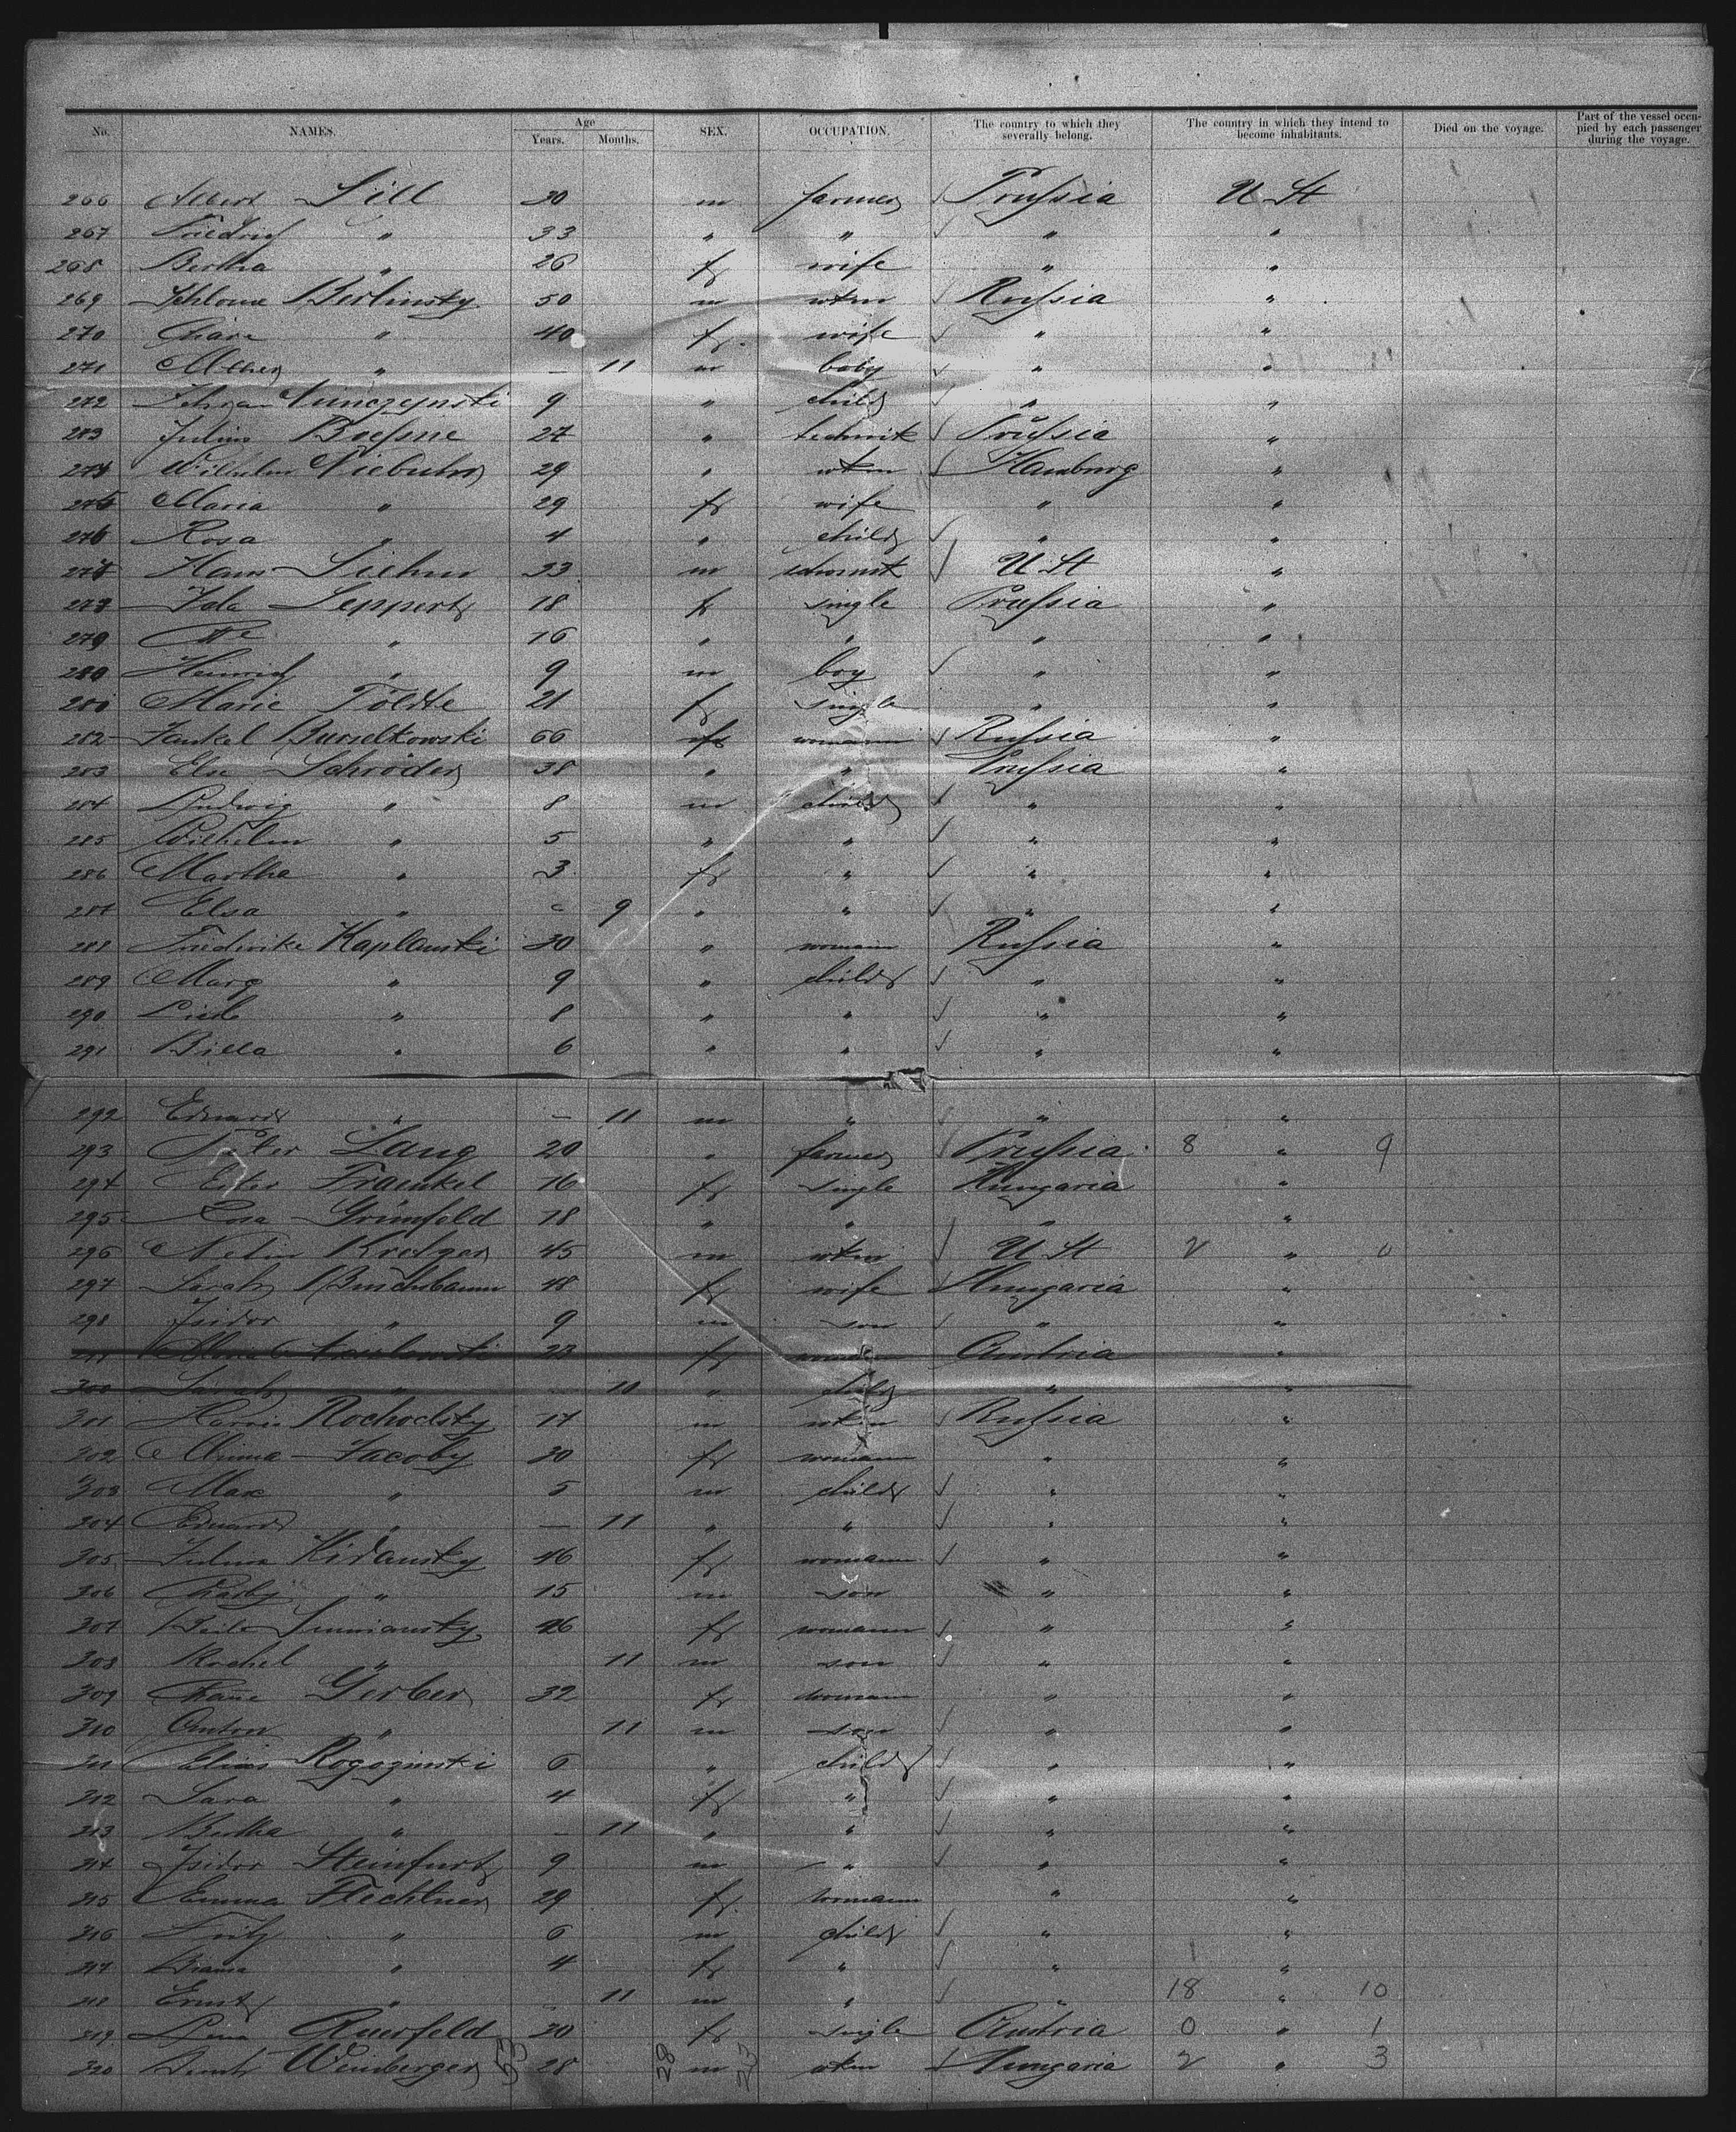 No. NAMES. Age Years. Months. SEX. OCCUPATION. The country to which they severally belong. The country in which they intend to become inhabitants. Died on the voyage. Part of the vessel occupied by each passenger during the voyage.
266 Albert Sill 30 m farmer Prussia U St
267 Friedrich " 33 " " " "
268 Bertha " 26 f wife " "
269 Schlome Berlinsky 50 m wkm Russia "
270 " 40 f wife " "
271 " — 11 m baby " "
272 9 " child " "
273 Julius 27 " technik Prussia "
274 Wilhelm Niebuhr 29 " wkm Hamburg "
275 Maria " 29 f wife " "
276 Rosa " 4 " child " "
277 Hans 33 m U St "
278 Ida Leppert 18 f single Prussia "
279 " 16 " " " "
280 Heinrich " 9 m boy " "
281 Marie Töldte 21 f single " "
282 Jankel Burseltkowski 66 womann Russia "
283 Else Schröder 38 " " Prussia "
284 Ludwig " 8 m child " "
285 Wilhelm " 5 " " " "
286 Martha " 3 f " " "
287 Elsa " 9 " " " "
288 Friederike Kaplanski 30 " womann Russia "
289 Marg " 9 " child " "
290 " 8 " " " "
291 Billa " 6 " " " "
292 Eduard " — 11 m " " "
293 Peter Lang 20 " farmer Prussia 8 " 9
294 Ester Fraenkel 16 f single Hungaria "
295 Rosa Grünfeld 18 " " " "
296 45 m wkm U St 2 " 0
297 Sarah Buschbaum 48 f wife Hungaria "
298 Isidor " 9 m son " "
23 f womann Austria "
300 Sarah " — 10 " child " "
301 Rochodsky 17 m wkm Russia "
302 Minna Jacoby 30 f womann " "
303 Max " 5 m child " "
304 Eduard " — 11 " " " "
305 Kidansky 46 f womann " "
306 " 15 m son " "
307 Beile 26 f womann " "
308 Rochel " 11 m son " "
309 Chane Gerber 32 f womann " "
310 Anton " 11 m son " "
311 Elias Rogozinski 6 " child " "
312 Sara " 4 f " " "
313 Bertha " — 11 " " " "
314 Isidor Steinfurt 9 m " " "
315 Emma Flechtner 29 f womann " "
316 Fritz " 6 m child " "
317 " 4 f " " "
318 Ernst " 11 m " " 18 " 10
319 Lena Auerfeld 30 f single Austria 0 " 1
320 Weinberger 28 m wkm Hungaria 2 " 3
53 28 23